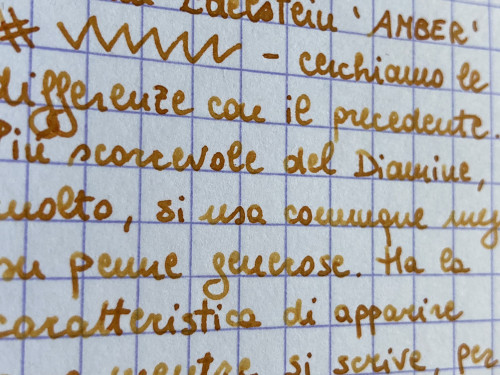 Edelstein 'AMBER'
# - cerchiamo le
differenze con il precedente.
Più scorrevole del Diamine,
molto, si usa comunque
su penne generose. Ha la
caratteristica di apparire
mentre si scrive, per